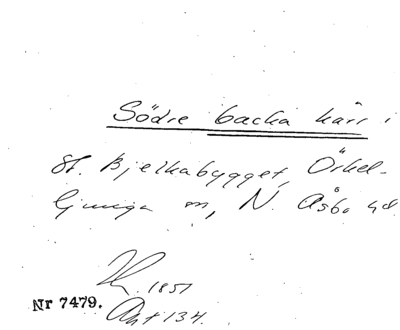 Södre backa kärr i
St. Bjelkabygget, Örkel-
ljunga sn, N. Åsbo hd.
1851
Nr 7479.
Akt 134.